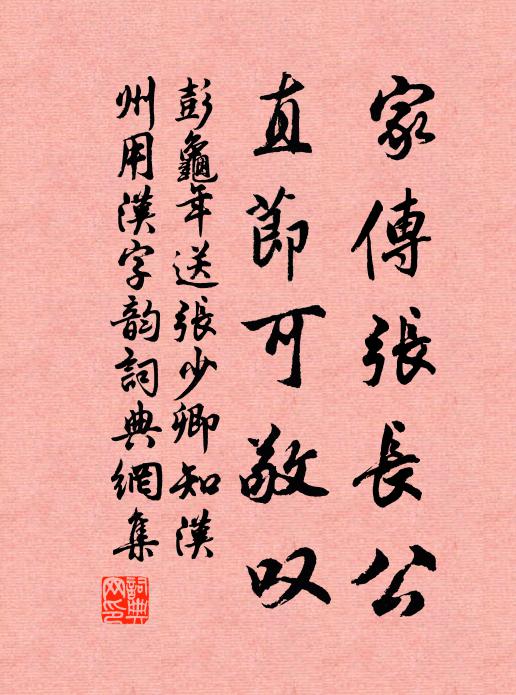 家傳張長公
直節可敬叹
彭龜年送張少卿知漢
州用漢字韵詞典網集
詞典網印